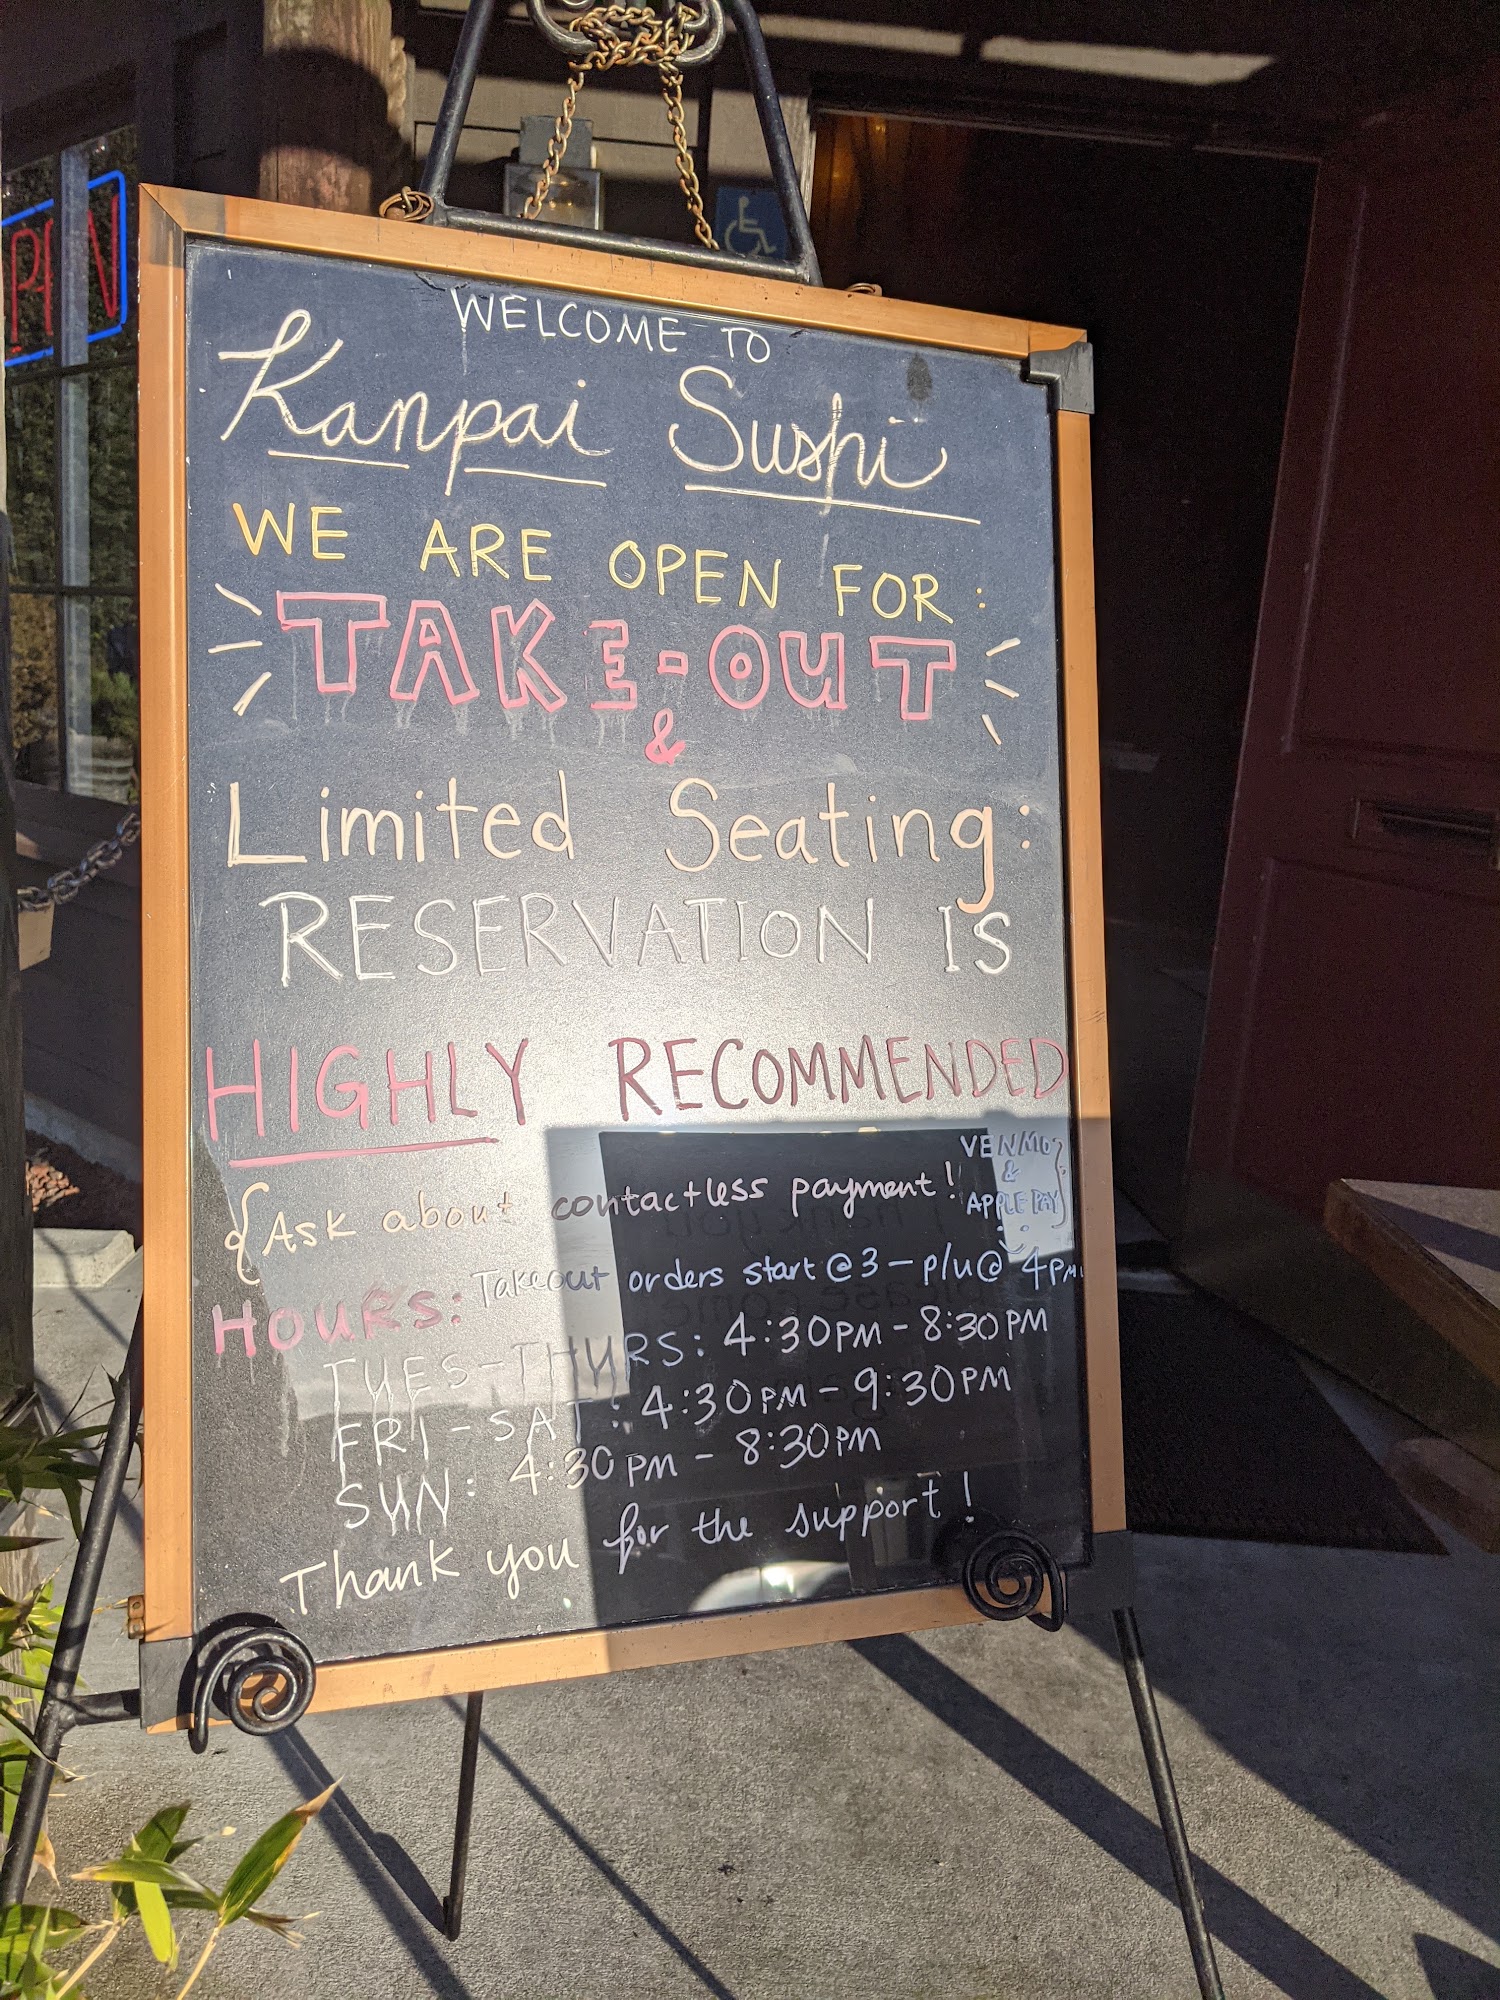 WELCOME TO
Kanpai Sushi
WE ARE OPEN FOR:
TAKE-OUT
&
Limited Seating:
RESERVATION IS
HIGHLY RECOMMENDED
{Ask about contactless payment!
VENMO
&
APPLE PAY}
HOURS: Takeout orders start @ 3 - p/u @ 4PM
TUES-THURS: 4:30PM - 8:30PM
FRI-SAT: 4:30PM - 9:30PM
SUN: 4:30PM - 8:30PM
Thank you for the support!